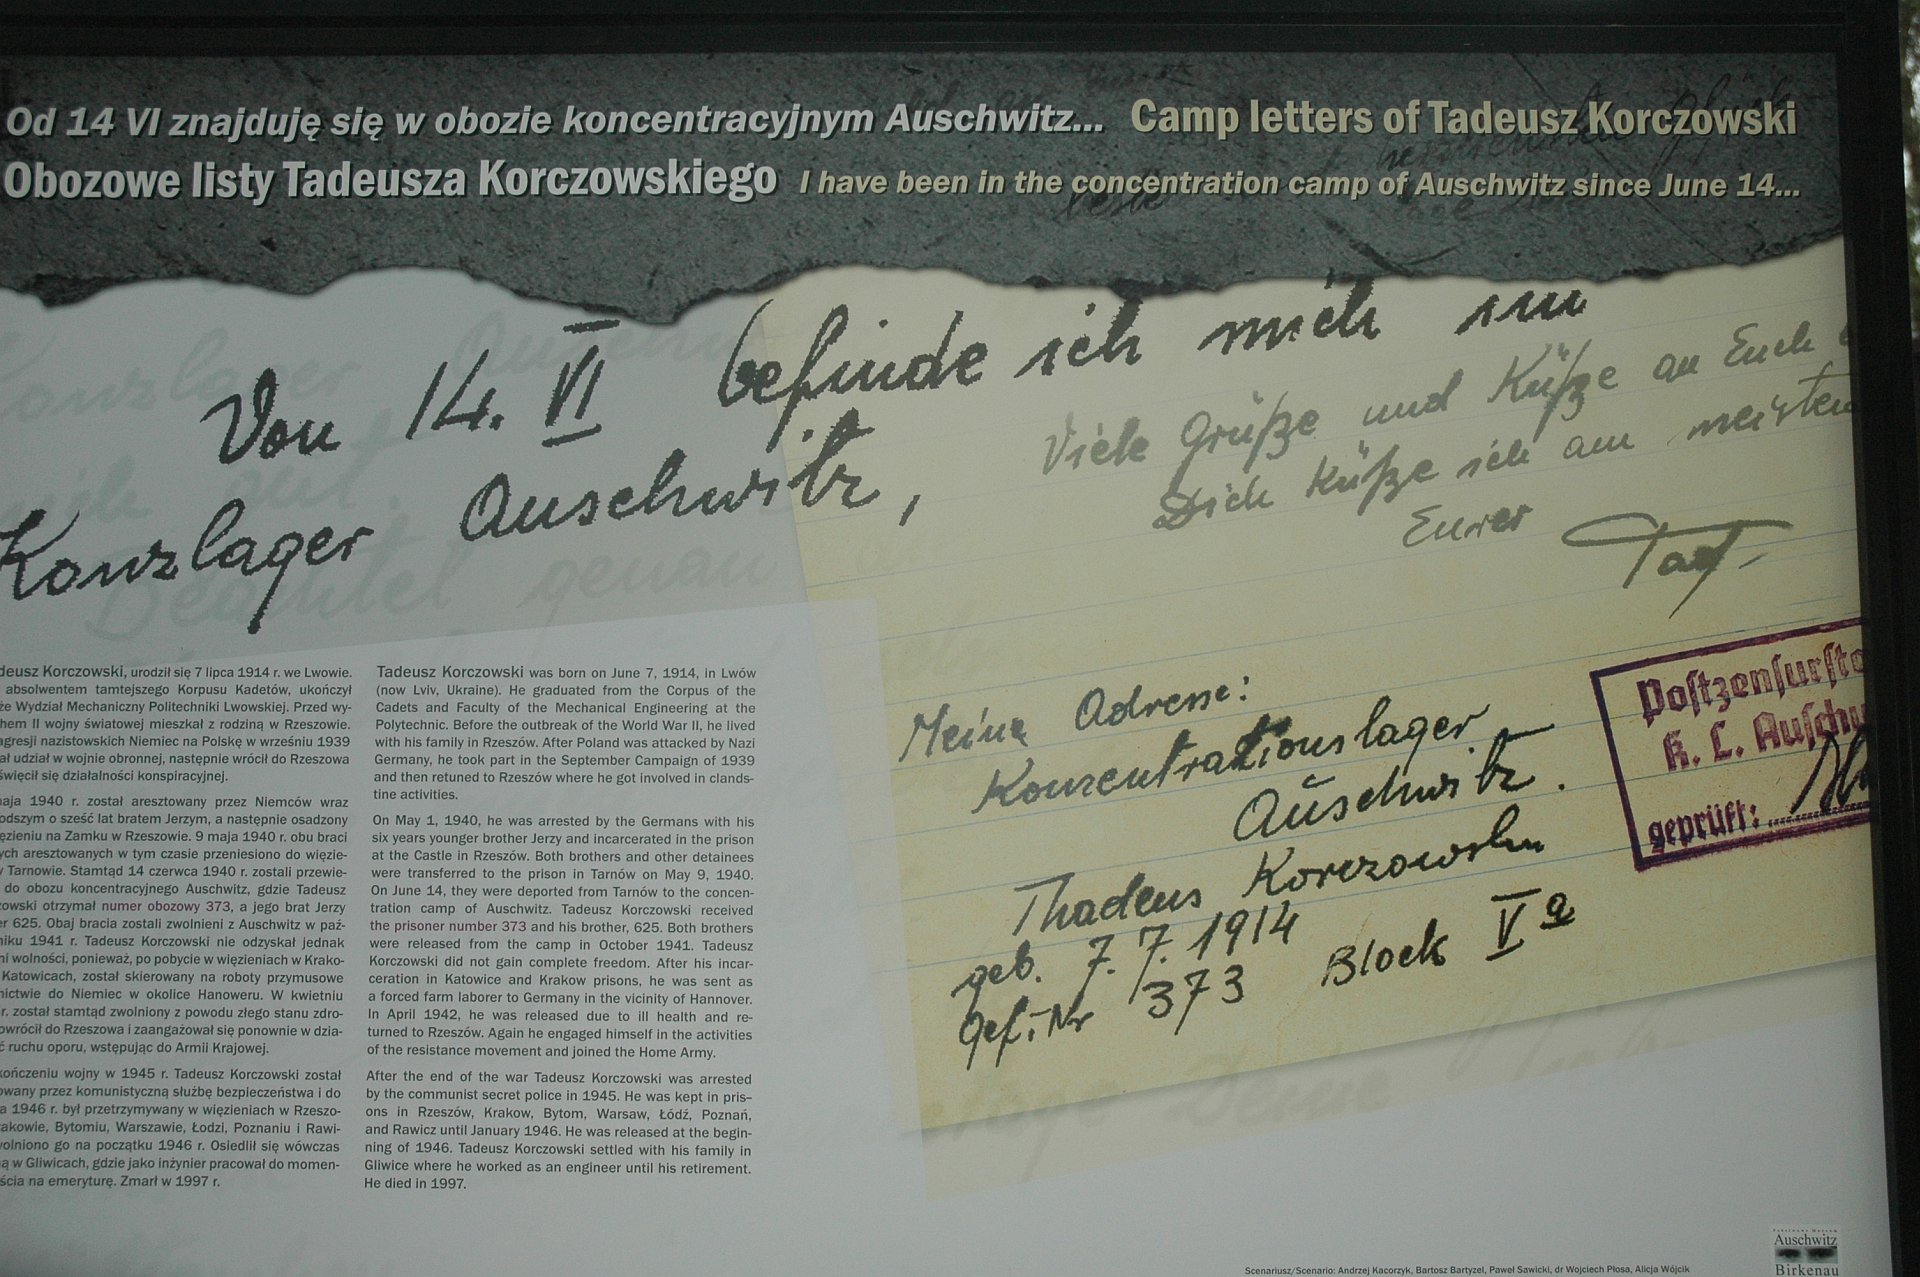 Od 14 VI znajduję się w obozie koncentracyjnym Auschwitz...
Obozowe listy Tadeusza Korczowskiego
Camp letters of Tadeusz Korczowski
I have been in the concentration camp of Auschwitz since June 14...
Von 14. VI befinde ich mich im
Konzlager Auschwitz,
Viele Grüße und Küße an Euch
Dich küße ich am meisten
Eurer
Meine Adresse:
Konzentrationslager
Auschwitz.
Thadeus Korczowski
geb. 7.7.1914
Gef. Nr 373 Block V a
K. L.
geprüft:
deusz Korczowski, urodził się 7 lipca 1914 r. we Lwowie.
absolwentem tamtejszego Korpusu Kadetów, ukończył
że Wydział Mechaniczny Politechniki Lwowskiej. Przed wy-
hem II wojny światowej mieszkał z rodziną w Rzeszowie.
agresji nazistowskich Niemiec na Polskę w wrześniu 1939
ał udział w wojnie obronnej, następnie wrócił do Rzeszowa
święcił się działalności konspiracyjnej.
maja 1940 r. został aresztowany przez Niemców wraz
odszym o sześć lat bratem Jerzym, a następnie osadzony
ęzieniu na Zamku w Rzeszowie. 9 maja 1940 r. obu braci
ych aresztowanych w tym czasie przeniesiono do więzie-
Tarnowie. Stamtąd 14 czerwca 1940 r. zostali przewie-
do obozu koncentracyjnego Auschwitz, gdzie Tadeusz
zowski otrzymał numer obozowy 373, a jego brat Jerzy
er 625. Obaj bracia zostali zwolnieni z Auschwitz w paź-
niku 1941 r. Tadeusz Korczowski nie odzyskał jednak
ni wolności, ponieważ, po pobycie w więzieniach w Krako-
Katowicach, został skierowany na roboty przymusowe
nictwie do Niemiec w okolice Hanoweru. W kwietniu
r. został stamtąd zwolniony z powodu złego stanu zdro-
owrócił do Rzeszowa i zaangażował się ponownie w dzia-
ć ruchu oporu, wstępując do Armii Krajowej.
kończeniu wojny w 1945 r. Tadeusz Korczowski został
owany przez komunistyczną służbę bezpieczeństwa i do
a 1946 r. był przetrzymywany w więzieniach w Rzeszo-
rakowie, Bytomiu, Warszawie, Łodzi, Poznaniu i Rawi-
wolniono go na początku 1946 r. Osiedlił się wówczas
ą w Gliwicach, gdzie jako inżynier pracował do momen-
ścia na emeryturę. Zmarł w 1997 r.
Tadeusz Korczowski was born on June 7, 1914, in Lwów
(now Lviv, Ukraine). He graduated from the Corpus of the
Cadets and Faculty of the Mechanical Engineering at the
Polytechnic. Before the outbreak of the World War II, he lived
with his family in Rzeszów. After Poland was attacked by Nazi
Germany, he took part in the September Campaign of 1939
and then retuned to Rzeszów where he got involved in clandes-
tine activities.
On May 1, 1940, he was arrested by the Germans with his
six years younger brother Jerzy and incarcerated in the prison
at the Castle in Rzeszów. Both brothers and other detainees
were transferred to the prison in Tarnów on May 9, 1940.
On June 14, they were deported from Tarnów to the concen-
tration camp of Auschwitz. Tadeusz Korczowski received
the prisoner number 373 and his brother, 625. Both brothers
were released from the camp in October 1941. Tadeusz
Korczowski did not gain complete freedom. After his incar-
ceration in Katowice and Krakow prisons, he was sent as
a forced farm laborer to Germany in the vicinity of Hannover.
In April 1942, he was released due to ill health and re-
turned to Rzeszów. Again he engaged himself in the activities
of the resistance movement and joined the Home Army.
After the end of the war Tadeusz Korczowski was arrested
by the communist secret police in 1945. He was kept in pris-
ons in Rzeszów, Krakow, Bytom, Warsaw, Łódź, Poznań,
and Rawicz until January 1946. He was released at the begin-
ning of 1946. Tadeusz Korczowski settled with his family in
Gliwice where he worked as an engineer until his retirement.
He died in 1997.
Scenariusz/Scenario: Andrzej Kacorzyk, Bartosz Bartyzel, Paweł Sawicki, dr Wojciech Płosa, Alicja Wójcik
Auschwitz
Birkenau